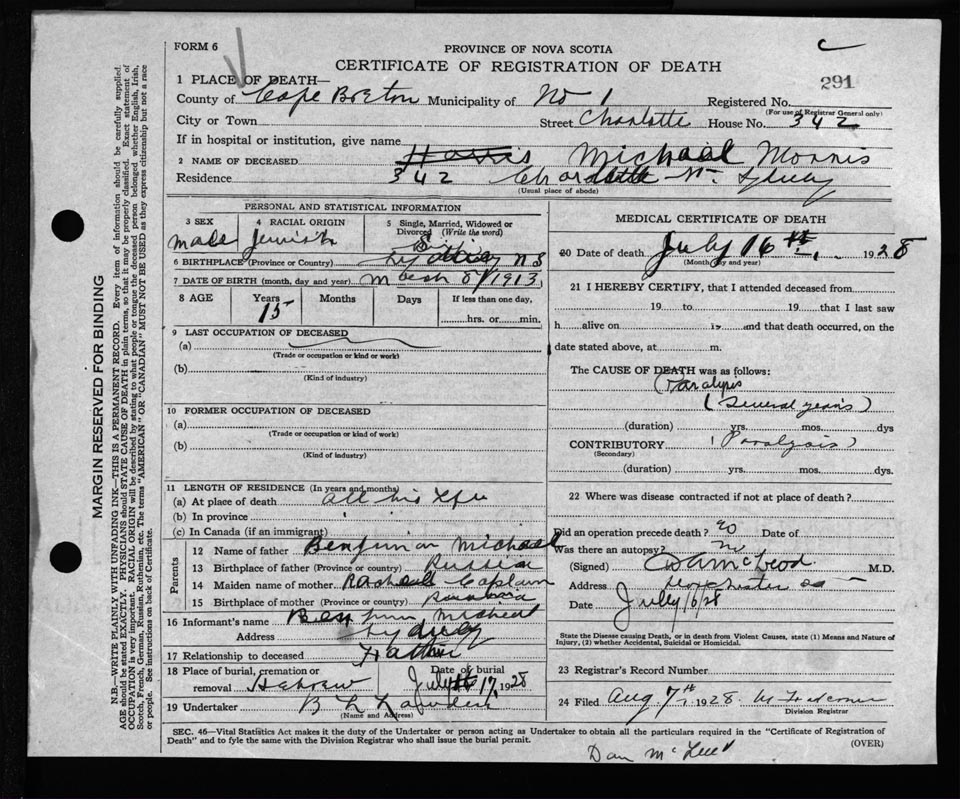 FORM 6
PROVINCE OF NOVA SCOTIA
CERTIFICATE OF REGISTRATION OF DEATH
291
1 PLACE OF DEATH—
County of Cape Breton Municipality of No 1 Registered No.
(For use of Registrar General only)
City or Town Street Charlotte House No. 342
If in hospital or institution, give name
2 NAME OF DECEASED Harris Michael Morris
Residence 342 Charlotte St. Sydney
(Usual place of abode)
PERSONAL AND STATISTICAL INFORMATION
3 SEX 4 RACIAL ORIGIN 5 Single, Married, Widowed or Divorced (Write the word)
male Jewish
6 BIRTHPLACE (Province or Country) Sydney N S
7 DATE OF BIRTH (month, day and year) 8/1913
8 AGE Years Months Days If less than one day,
15 hrs. or min.
9 LAST OCCUPATION OF DECEASED
(a)
(Trade or occupation or kind or work)
(b)
(Kind of industry)
10 FORMER OCCUPATION OF DECEASED
(a)
(Trade or occupation or kind of work)
(b)
(Kind of industry)
11 LENGTH OF RESIDENCE (In years and months)
(a) At place of death all his life
(b) In province
(c) In Canada (if an immigrant)
Parents
12 Name of father Benjamin Michael
13 Birthplace of father (Province or country) Russia
14 Maiden name of mother Racheal Caplan
15 Birthplace of mother (Province or country)
16 Informant's name Benjamin Micheal
Address Sydney
17 Relationship to deceased Father
18 Place of burial, cremation or removal Hebrew Date of burial July 17, 1928
19 Undertaker B L
(Name and Address)
MEDICAL CERTIFICATE OF DEATH
20 Date of death July 16th 1928
(Month, day and year)
21 I HEREBY CERTIFY, that I attended deceased from
19 to 19 that I last saw
h alive on 19 and that death occurred, on the
date stated above, at m.
The CAUSE OF DEATH was as follows:
Paralysis
(Several years)
(duration) yrs. mos. dys
CONTRIBUTORY (Paralysis)
(Secondary)
(duration) yrs. mos. dys.
22 Where was disease contracted if not at place of death?
Did an operation precede death? no Date of
Was there an autopsy? no
(Signed) D A McLeod M.D.
Address
Date July 16/28
State the Disease causing Death, or in death from Violent Causes, state (1) Means and Nature of
Injury, (2) whether Accidental, Suicidal or Homicidal.
23 Registrar's Record Number
24 Filed Aug 7th 1928
Division Registrar
SEC. 46—Vital Statistics Act makes it the duty of the Undertaker or person acting as Undertaker to obtain all the particulars required in the "Certificate of Registration of
Death" and to fyle the same with the Division Registrar who shall issue the burial permit.
(OVER)
Dan
MARGIN RESERVED FOR BINDING
N.B.—WRITE PLAINLY WITH UNFADING INK—THIS IS A PERMANENT RECORD. Every items of information should be carefully supplied.
AGE should be stated EXACTLY. PHYSICIANS should STATE CAUSE OF DEATH in plain terms, so that it may be properly classified. Exact statement of
OCCUPATION is very important. RACIAL ORIGIN will be described by stating to what people or tongue the deceased person belonged whether English, Irish,
Scotch, French, German, Russian, Ruthenian, etc. The terms "AMERICAN" OR "CANADIAN" MUST NOT BE USED as they express citizenship but not a race
or people. See instructions on back of Certificate.